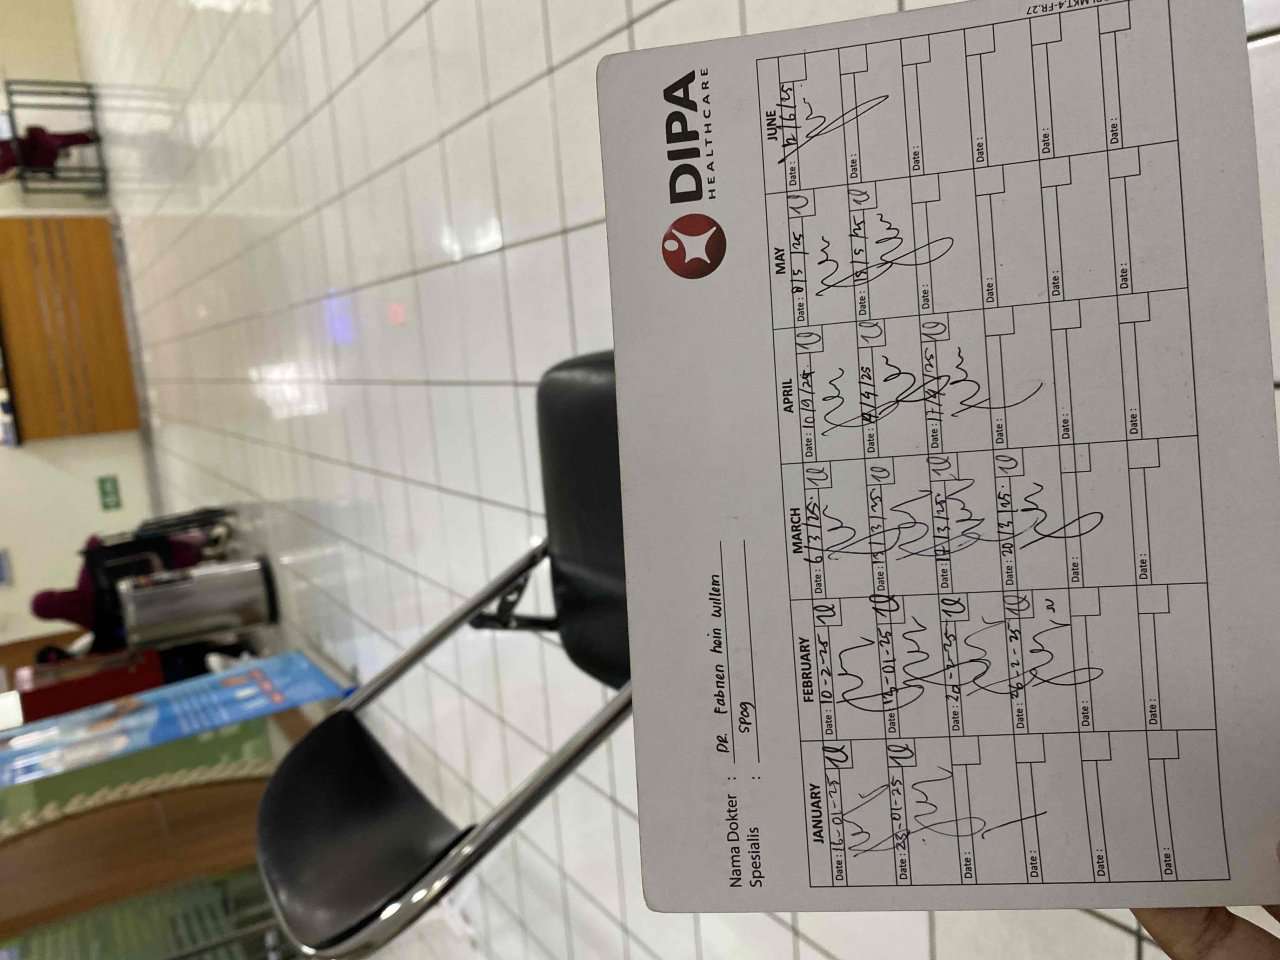 DIPA
HEALTHCARE
Nama Dokter : DR. Fabnen hein willem
Spesialis : SPOG
JANUARY FEBRUARY MARCH APRIL MAY JUNE
Date: 16-01-25 Date: 10-2-25 Date: 6/3/25. Date: 10/4/24. Date: 8/5/25 Date: 12/6/25
Date: 23-01-25 Date: 13-01-25 Date: 13/3/25 Date: 14/4/25 Date: 15/5/25 Date:
Date: Date: 20-2-25 Date: 17/3/25. Date: 17/4/25 Date: Date:
Date: Date: 26-2-25 Date: 20/3/25. Date: Date: Date:
Date: Date: Date: Date: Date: Date:
Date: Date: Date: Date: Date: Date:
MKT.4-FR.27